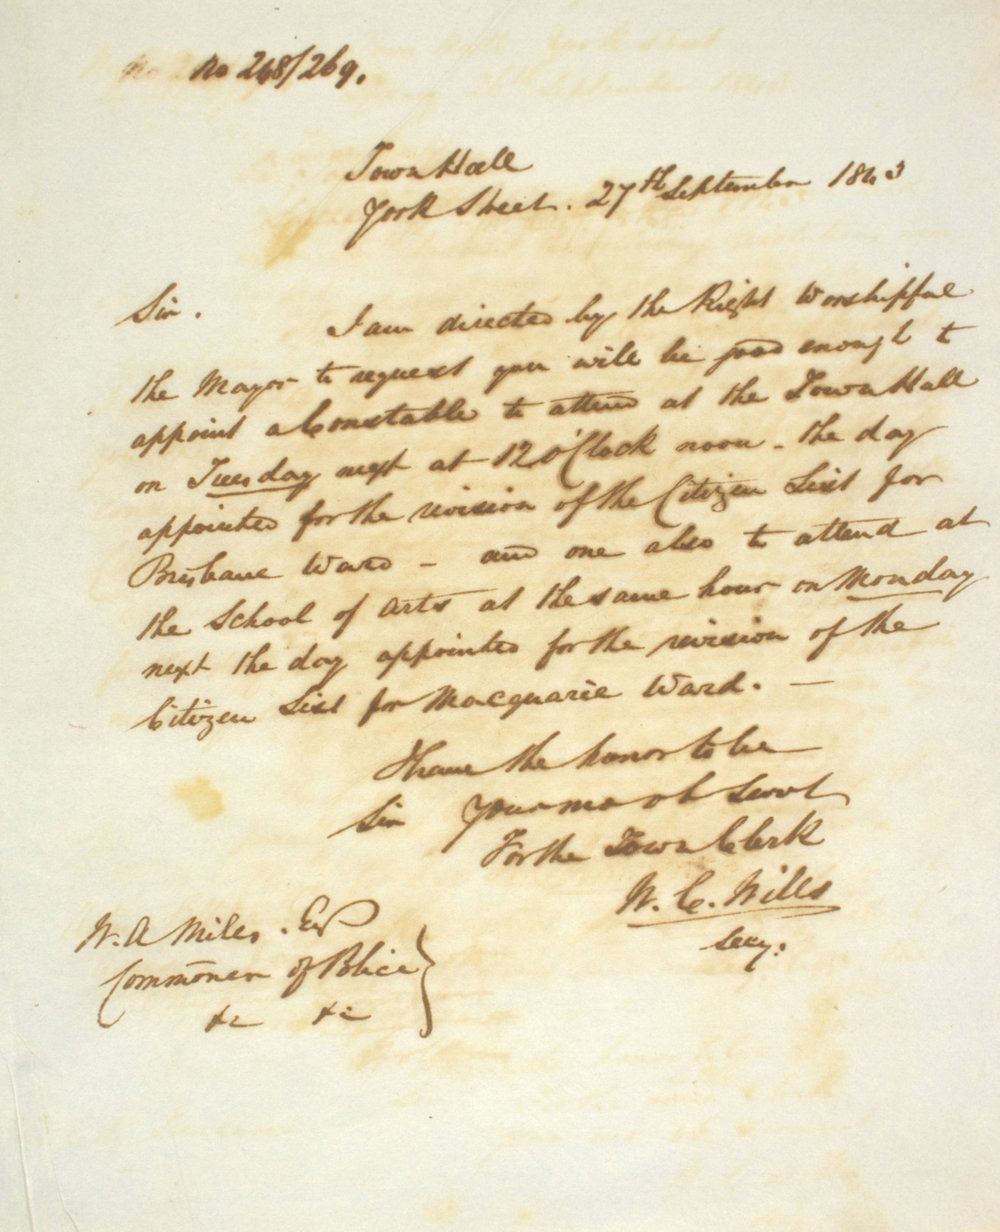 No 248/269.
Town Hall
York Street. 27th September 1843
Sir.
I am directed by the Right Worshipful
the Mayor to request you will be good enough to
appoint a Constable to attend at the Town Hall
on Tuesday next at 12 o'Clock noon - the day
appointed for the revision of the Citizen List for
Brisbane Ward - and one also to attend at
the School of Arts at the same hour on Monday
next the day appointed for the revision of the
Citizen List for Macquarie Ward. -
I have the honor to be
Sir Your mo ob Servt
For the Town Clerk
W. C. Wills
Secy.
W. A Miles. Esq
Commoner of Police
&c &c